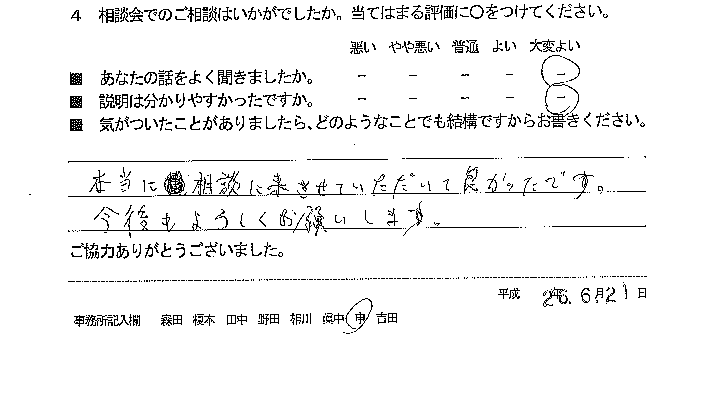 4 相談会でのご相談はいかがでしたか。当てはまる評価に○をつけてください。
悪い やや悪い 普通 よい 大変よい
■ あなたの話をよく聞きましたか。 － － － － －
■ 説明は分かりやすかったですか。 － － － － －
■ 気がついたことがありましたら、どのようなことでも結構ですからお書きください。
本当に相談に来させていただいて良かったです。
今後もよろしくお願いします。
ご協力ありがとうございました。
平成 26年 6月21日
事務所記入欄 森田 榎本 田中 野田 相川 眞中 申 吉田